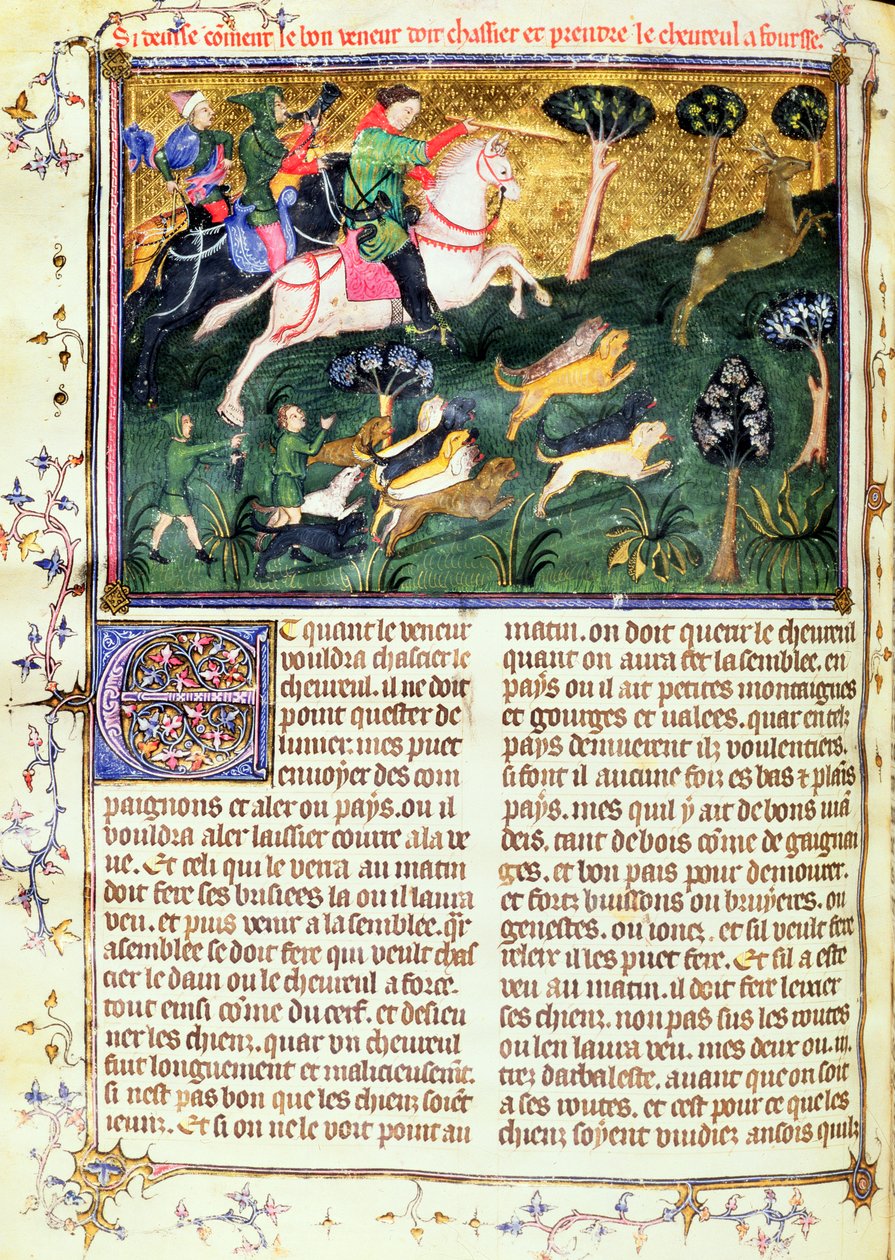 Si devise cōment le bon veneur doit chassier et prendre le chevreul a foursse.
Et quant le veneur
vouldra chascier le
chevreul. il ne doit
point quester de
limier. mes puet
envoyer des com
paignons et aler ou pays. ou il
vouldra aler laissier courre a la ve
ue. Et celi qui le verra au matin
doit fere ses brisiees la ou il laura
veu. et puis venir a la semblee. qr̄
asemblee se doit fere qui veult chas
cier le dain ou le chevreul a force.
tout einsi cōme du cerf. et desieu
ner les chienz. quar un chevreul
fuit longuement et malicieusemēt.
si nest pas bon que les chienz soiēt
ieunz. Et si on ne le voit point au
matin. on doit querir le chevreul
quant on aura fet la semblee. en
pays ou il ait petites montaignes
et gourges et valees. quar en telz
pays demuerent ilz voulentiers.
si font il aucune foiz es bas & plains
pays. mes quil y ait de bons viā
deis. tant de bois cōme de gaignai
ges. et bon pais pour demourer.
et fortz buissons ou bruyeres. ou
genestes. ou ionez. et sil veult fere
releix il les puet fere. Et sil a este
veu au matin. il doit fere leixier
ses chienz. non pas sus les routes
ou len laura veu. mes deux ou .iii.
tirez darbaleste. avant que on soit
a ses routes. et cest pour ce que les
chienz soyent vuidiez ansois quilz